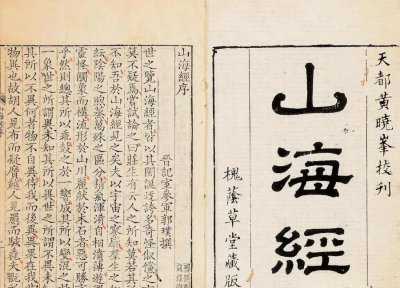 天都黃曉峯校刊
山海經
槐蔭草堂藏版
山海經序
晉記室參軍郭璞撰
世之覽山海經者皆以其閎誕迂誇多奇怪俶儻之
莫不疑焉嘗試論之曰莊生有云人之所知莫若其
不知吾於山海經見之矣夫以宇宙之寥廓羣生之
紜陰陽之煦蒸萬殊之區分精氣渾淆自相濆薄遊
靈怪觸象而構流形於山川麗狀於木石者惡可勝
乎然則總其所以乖鼓之於一響成其所以變混之
一象世之所謂異未知其所以異世之所謂不異
其所以不異何者物不自異待我而後異異果在我
物異也故胡人見布而疑黂越人見罽而駭毳夫翫